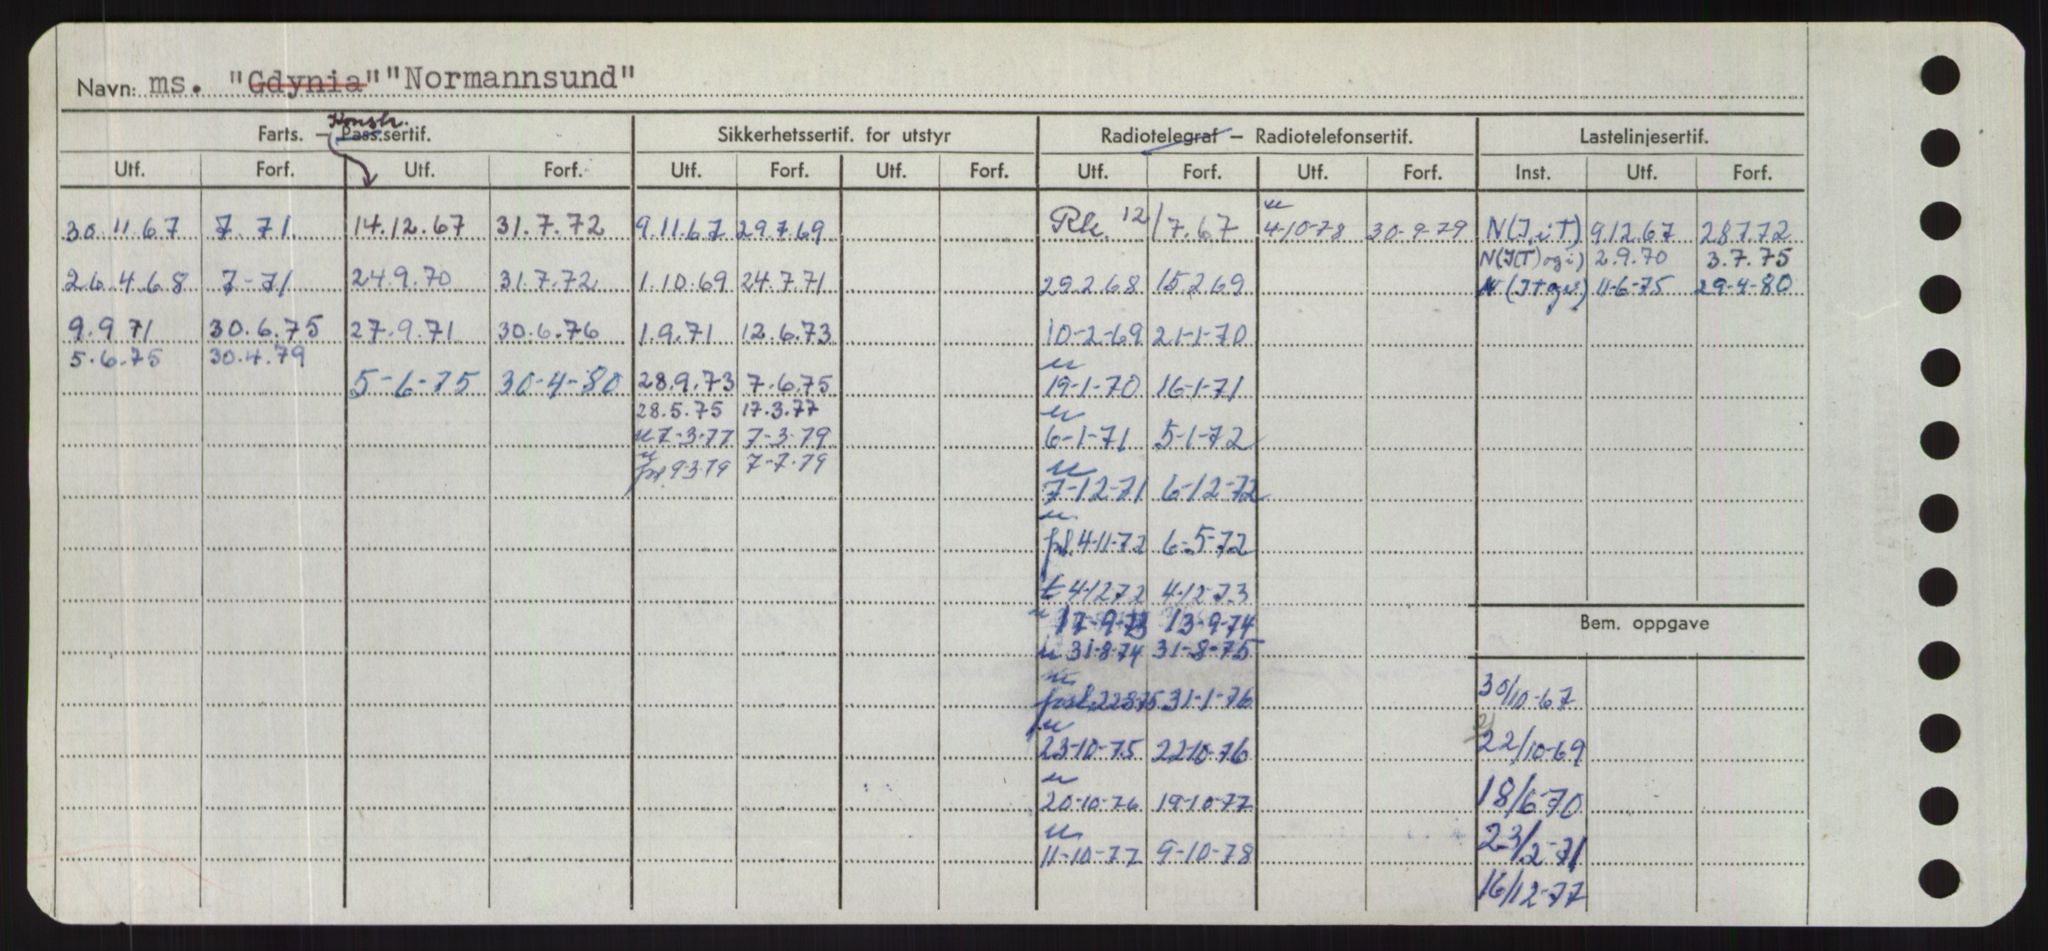 Navn: ms. "Gdynia" "Normannsund"
Konstr.
Farts. — Pass.sertif. Sikkerhetssertif. for utstyr Radiotelegraf — Radiotelefonsertif. Lastelinjesertif.
Utf. Forf. Utf. Forf. Utf. Forf. Utf. Forf. Utf. Forf. Utf. Forf. Inst. Utf. Forf.
30.11.67 7.71. 14.12.67 31.7.72 9.11.67 29.7.69 Rk. 12/7.67 4-10-78 30-9-79 9.12.67 28.7.72
2.9.70 3.7.75
26.4.68 7-71 24.9.70 31.7.72 1.10.69 24.7.71 29.2.68 15.2.69 11-6-75 29-4-80
9.9.71 30.6.75 27.9.71 30.6.76 1.9.71 12.6.73 10-2-69 21-1-70
5.6.75 30.4.79
5-6-75 30-4-80 28.9.73 7.6.75 19-1-70 16-1-71
28.5.75 17.3.77
7-3-77 7-3-79 6-1-71 5-1-72
9-3-79 7-7-79
7-12-71 6-12-72
4-11-72 6-5-72
4-12-72 4-12-73
17-9-73 13-9-74
31-8-74 31-8-75
Bem. oppgave
22-8-75 31-1-76
30/10-67
23-10-75 22-10-76
22/10-69
20-10-76 19-10-77
18/6-70
11-10-77 9-10-78
23/2-71
16/12-77